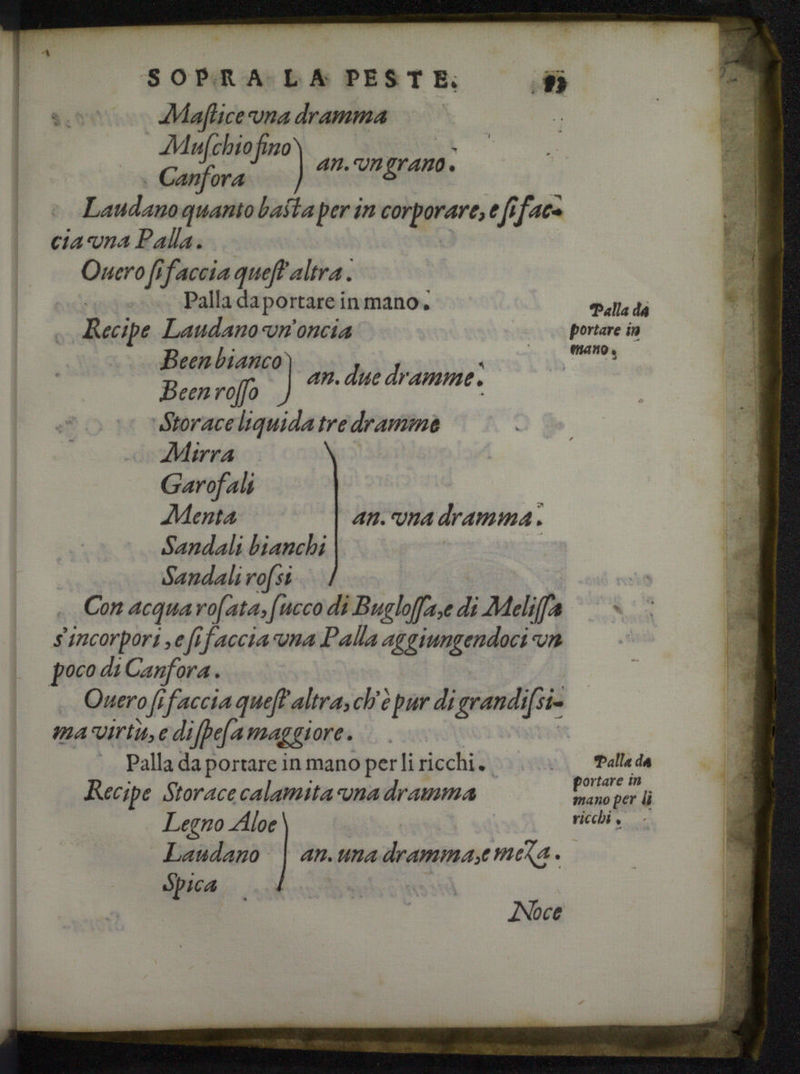 SOPRA LA PESTE.
Maſtice vna dramma
Muſchio fino
an. vn grano.
Canfora
Laudano quanto baſta per in corporare, e ſi fac-
cia vna Palla.
Ouero ſi faccia queſt'altra.
Palla da portare in mano.
Palla da
portare in
mano.
Recipe Laudano vn'oncia
Been bianco
an. due dramme.
Been roſſo
Storace liquida tre dramme
Mirra
Garofali
Menta
an. vna dramma.
Sandali bianchi
Sandali roſsi
Con acqua roſata, ſucco di Bugloſſa, e di Meliſſa
s'incorpori, e ſi faccia vna Palla aggiungendoci vn
poco di Canfora.
Ouero ſi faccia queſt'altra, ch'è pur di grandiſsi-
ma virtù, e diſpeſa maggiore.
Palla da portare in mano per li ricchi.
Palla da
portare in
mano per li
ricchi.
Recipe Storace calamita vna dramma
Legno Aloe
Laudano
an. una dramma, e meza.
Spica
Noce